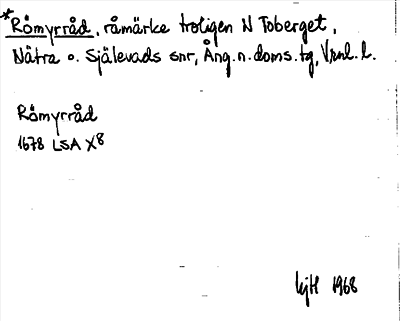 *Römyrråd, råmärke troligen N Toberget,
Nätra o. Själevads snr, Ång.n.doms.tg, Vrnl.l.
Römyrråd
1678 LSA X8
1968